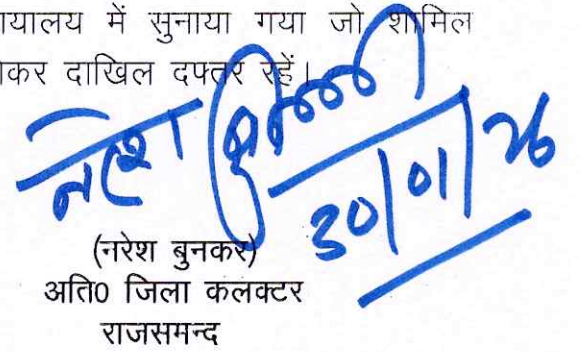 यालय में सुनाया गया जो शामिल
कर दाखिल दफ्तर रहें।
नरेश
30/01/26
(नरेश बुनकर)
अति0 जिला कलक्टर
राजसमन्द